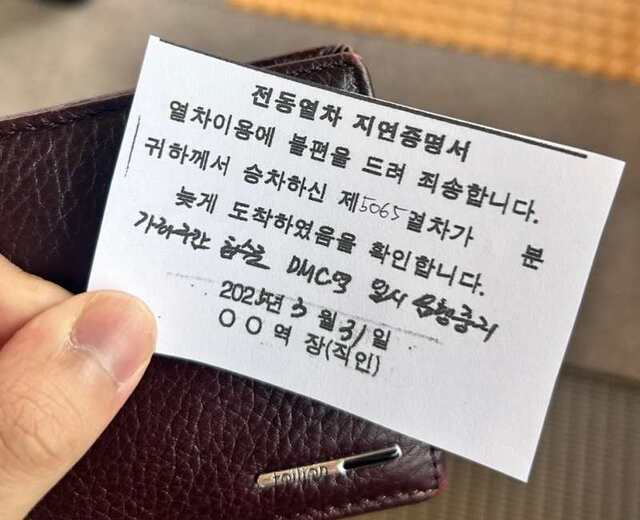 전동열차 지연증명서
열차이용에 불편을 드려 죄송합니다.
귀하께서 승차하신 제5065열차가 분
늦게 도착하였음을 확인합니다.
DMC역 일시 운행중지
2025년 3월 31일
○○역 장(직인)